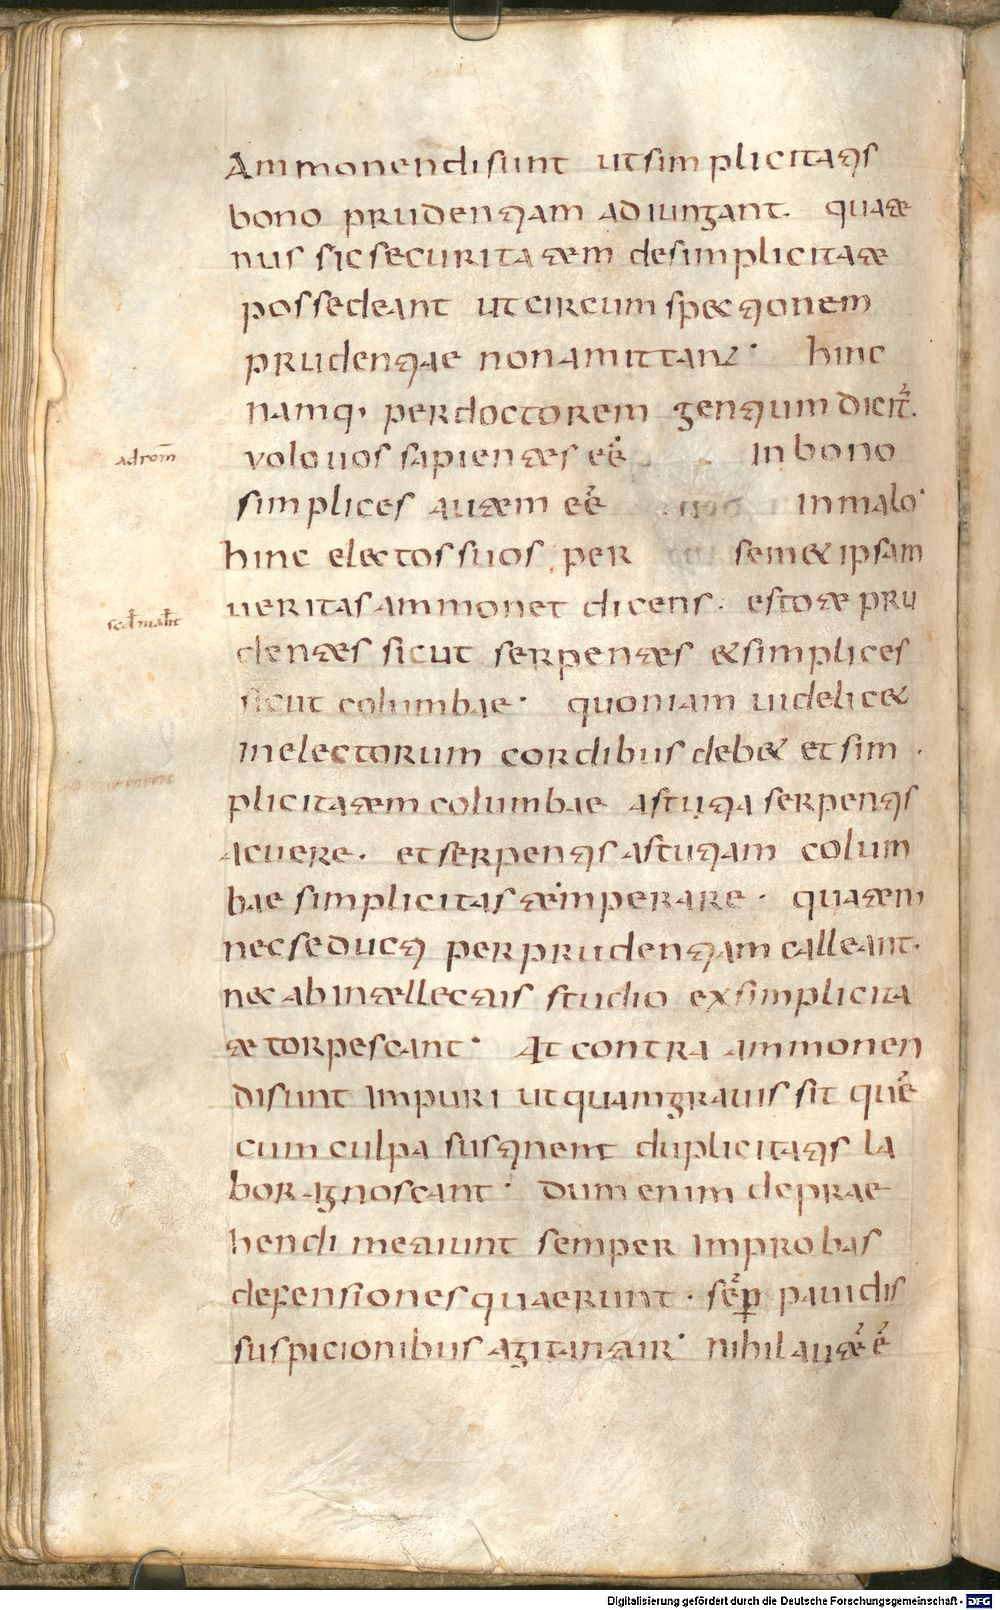 Ammonendi sunt ut simplicitatis
bono prudentiam adiungant. quate
nus sic securitatem de simplicitate
possedeant ut circumspectionem
prudentiae non amittant· hinc
namq, per doctorem gentium dicit̄.
ad rom̄
volo uos sapientes eē in bono
simplices autem eē in malo·
hinc electos suos per semet ipsam
ueritas ammonet dicens. estote pru
sec̄d math̄
dentes sicut serpentes & simplices
sicut columbae· quoniam uidelicet
in electorum cordibus debet et sim
plicitatem columbae astutia serpentis
acuere. et serpentis astutiam colum
bae simplicitas temperare. qua tem
nec seducti per prudentiam calleant.
nec ab intellectuis studio ex simplicita
te torpescant· At contra ammonen
di sunt impuri ut quam grauis sit quē
cum culpa sustinent duplicitatis la
bor agnoscant· dum enim deprae
hendi metuunt semper improbas
defensiones quaerunt. sēp pauidis
suspicionibus agitantur· nihil autē ē
Digitalisierung gefördert durch die Deutsche Forschungsgemeinschaft - DFG